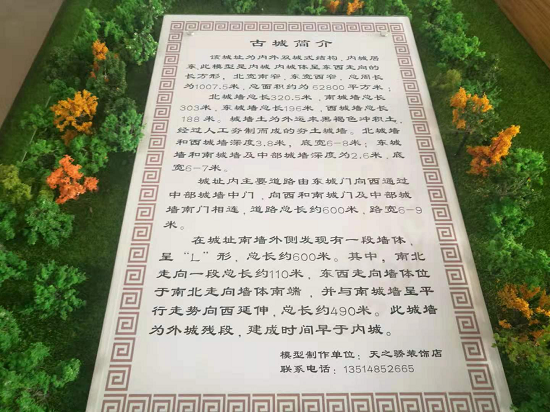 古城简介
该城址为内外双城式结构，内城居
东，此模型是内城，内城体呈东西走向的
长方形，北宽南窄，东宽西窄，总周长
为1007.5米，总面积约为62800平方米；
北城墙总长320.5米，南城墙总长
303米，东城墙总长196米，西城墙总长
188米。城墙土为外运来黑褐色冲积土，
经过人工夯制而成的夯土城墙。北城墙
和西城墙深度3.8米，底宽6-8米；东城
墙和南城墙及中部城墙深度为2.6米，底
宽6-7米。
城址内主要道路由东城门向西通过
中部城墙中门，向西和南城门及中部城
墙南门相连，道路总长约600米，路宽6-9
米。
在城址南墙外侧发现有一段墙体，
呈“L”形，总长约600米。其中，南北
走向一段总长约110米，东西走向墙体位
于南北走向墙体南端，并与南城墙呈平
行走势向西延伸，总长约490米。此城墙
为外城残段，建成时间早于内城。
模型制作单位：天之骄装饰店
联系电话：13514852665